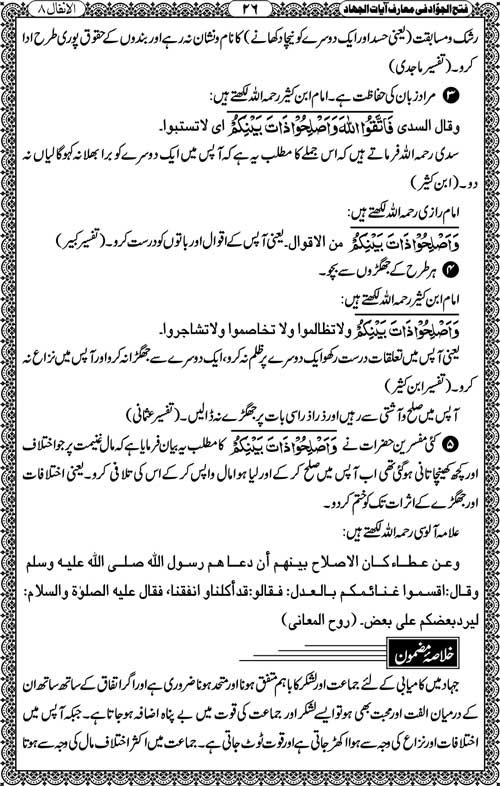 فتح الجوّاد فی معارف آیات الجهاد ۲۶ الانفال ۸
رشک ومسابقت (یعنی حسد اور ایک دوسرے کو نیچا دکھانے) کا نام ونشان نہ رہے اور بندوں کے حقوق پوری طرح ادا
کرو۔ (تفسیر ماجدی)
۳ مراد زبان کی حفاظت ہے۔ امام ابن کثیر رحمہ اللہ لکھتے ہیں:
وقال السدی فَاتَّقُوا اللّٰهَ وَاَصْلِحُوْا ذَاتَ بَیْنِكُمْ ای لاتستبوا۔
سدی رحمہ اللہ فرماتے ہیں کہ اس جملے کا مطلب یہ ہے کہ آپس میں ایک دوسرے کو برا بھلا نہ کہو گالیاں نہ
دو۔ (ابن کثیر)
امام رازی رحمہ اللہ لکھتے ہیں:
وَاَصْلِحُوْا ذَاتَ بَیْنِكُمْ من الاقوال۔ یعنی آپس کے اقوال اور باتوں کو درست کرو۔ (تفسیر کبیر)
۴ ہر طرح کے جھگڑوں سے بچو۔
امام ابن کثیر رحمہ اللہ لکھتے ہیں:
وَاَصْلِحُوْا ذَاتَ بَیْنِكُمْ ولاتظالموا ولا تخاصموا ولاتشاجروا۔
یعنی آپس میں تعلقات درست رکھو ایک دوسرے پر ظلم نہ کرو، ایک دوسرے سے جھگڑا نہ کرو اور آپس میں نزاع نہ
کرو۔ (تفسیر ابن کثیر)
آپس میں صلح و آشتی سے رہیں اور ذرا ذرا سی بات پر جھگڑے نہ ڈالیں۔ (تفسیر عثمانی)
۵ کئی مفسرین حضرات نے وَاَصْلِحُوْا ذَاتَ بَیْنِكُمْ کا مطلب یہ بیان فرمایا ہے کہ مال غنیمت پر جو اختلاف
اور کچھ کھینچا تانی ہوگئی تھی اب آپس میں صلح کر کے اور لیا ہوا مال واپس کر کے اس کی تلافی کرو۔ یعنی اختلافات
اور جھگڑے کے اثرات تک کو ختم کردو۔
علامہ آلوسی رحمہ اللہ لکھتے ہیں:
وعن عطاء كان الاصلاح بينهم أن دعاهم رسول الله صلى الله عليه وسلم
وقال: اقسموا غنائمكم بالعدل: فقالو: قدأكلناو انفقنا، فقال عليه الصلوٰة والسلام:
ليردبعضكم على بعض۔ (روح المعانى)
خلاصۂ مضمون
جہاد میں کامیابی کے لئے جماعت اور لشکر کا باہم متفق ہونا اور متحد ہونا ضروری ہے اور اگر اتفاق کے ساتھ ساتھ ان
کے درمیان الفت اور محبت بھی ہو تو ایسے لشکر اور جماعت کی قوت میں بے پناہ اضافہ ہوجاتا ہے۔ جبکہ آپس میں
اختلافات اور نزاع کی وجہ سے ہوا اکھڑ جاتی ہے اور قوت ٹوٹ جاتی ہے۔ جماعت میں اکثر اختلاف مال کی وجہ سے ہوتا